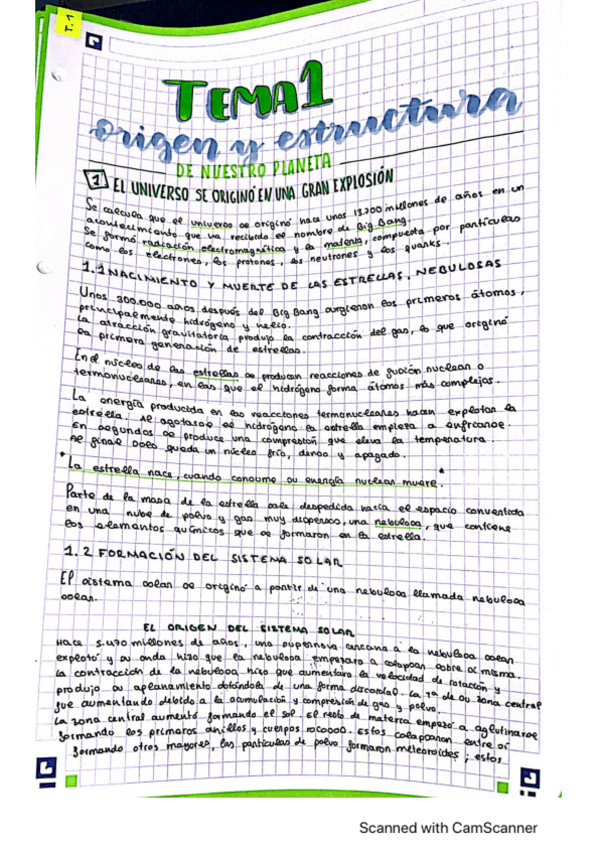 T.1
TEMA 1
origen y estructura
DE NUESTRO PLANETA
1 EL UNIVERSO SE ORIGINÓ EN UNA GRAN EXPLOSIÓN
Se calcula que el universo se originó hace unos 13.700 millones de años en un
acontecimiento que ha recibido el nombre de Big Bang.
Se formó radiación electromagnética y la materia, compuesta por partículas
como los electrones, los protones, los neutrones y los quarks.
1.1 NACIMIENTO Y MUERTE DE LAS ESTRELLAS. NEBULOSAS
Unos 300.000 años después del Big Bang surgieron los primeros átomos,
principalmente hidrógeno y helio.
La atracción gravitatoria produjo la contracción del gas, lo que originó
la primera generación de estrellas.
En el núcleo de las estrellas se producen reacciones de fusión nuclear o
termonucleares, en las que el hidrógeno forma átomos más complejos.
La energía producida en las reacciones termonucleares hacen explotar la
estrella. Al agotarse el hidrógeno la estrella empieza a enfriarse.
En segundos se produce una compresión que eleva la temperatura.
Al final solo queda un núcleo frío, denso y apagado.
* La estrella nace, cuando consume su energía nuclear muere. *
Parte de la masa de la estrella sale despedida hacia el espacio convertida
en una nube de polvo y gas muy disperso, una nebulosa, que contiene
los elementos químicos que se formaron en la estrella.
1.2 FORMACIÓN DEL SISTEMA SOLAR
El sistema solar se originó a partir de una nebulosa llamada nebulosa
solar.
EL ORIGEN DEL SISTEMA SOLAR
Hace 5.470 millones de años, una supernova cercana a la nebulosa solar
explotó y su onda hizo que la nebulosa empezara a colapsar sobre sí misma.
La contracción de la nebulosa hizo que aumentara la velocidad de rotación y
produjo su aplanamiento dotándola de una forma discoidal. La Tª de su zona central
fue aumentando debido a la acumulación y compresión de gas y polvo.
La zona central aumentó formando el sol. El resto de materia empezó a aglutinarse
formando los primeros anillos y cuerpos rocosos. Estos colapsaron entre sí
formando otros mayores, las partículas de polvo formaron meteoroides; estos
Scanned with CamScanner